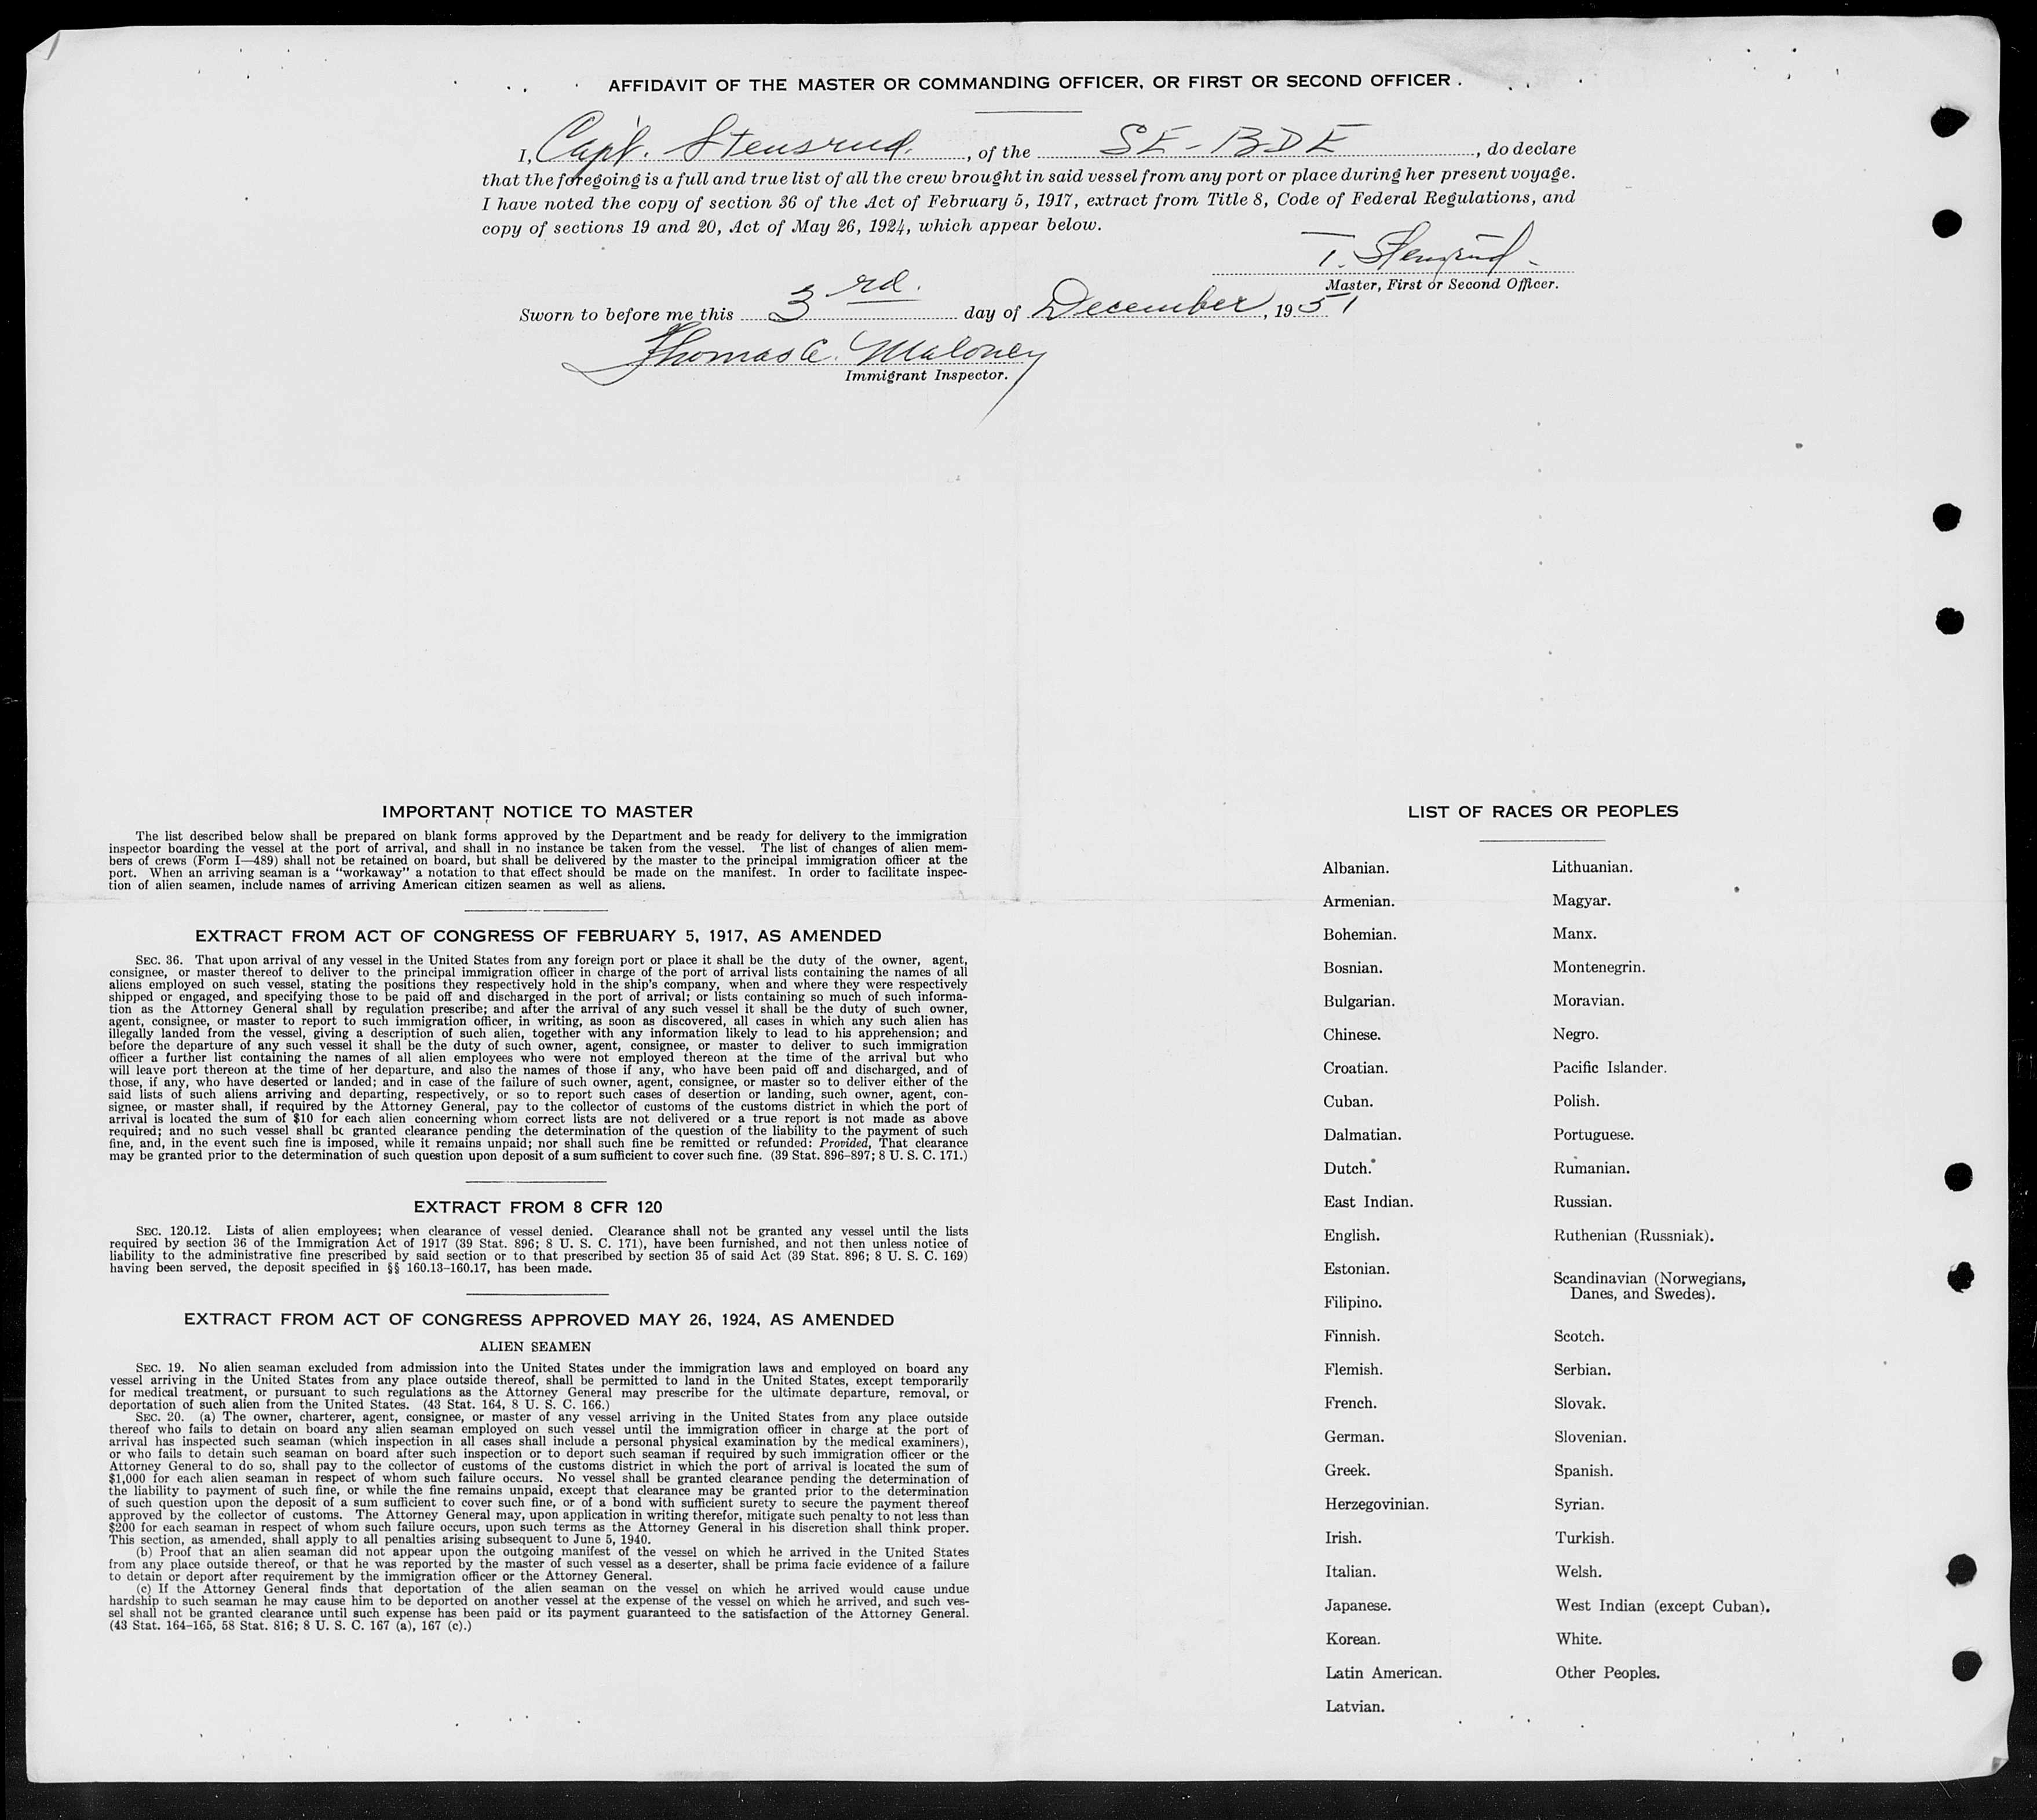 AFFIDAVIT OF THE MASTER OR COMMANDING OFFICER, OR FIRST OR SECOND OFFICER.
I, Capt. Stensrud, of the SE-BDE, do declare
that the foregoing is a full and true list of all the crew brought in said vessel from any port or place during her present voyage.
I have noted the copy of section 36 of the Act of February 5, 1917, extract from Title 8, Code of Federal Regulations, and
copy of sections 19 and 20, Act of May 26, 1924, which appear below.
T. Stensrud
Master, First or Second Officer.
Sworn to before me this 3rd. day of December, 1951
Thomas C. Maloney
Immigrant Inspector.
IMPORTANT NOTICE TO MASTER
The list described below shall be prepared on blank forms approved by the Department and be ready for delivery to the immigration
inspector boarding the vessel at the port of arrival, and shall in no instance be taken from the vessel. The list of changes of alien mem-
bers of crews (Form I—489) shall not be retained on board, but shall be delivered by the master to the principal immigration officer at the
port. When an arriving seaman is a "workaway" a notation to that effect should be made on the manifest. In order to facilitate inspec-
tion of alien seamen, include names of arriving American citizen seamen as well as aliens.
EXTRACT FROM ACT OF CONGRESS OF FEBRUARY 5, 1917, AS AMENDED
SEC. 36. That upon arrival of any vessel in the United States from any foreign port or place it shall be the duty of the owner, agent,
consignee, or master thereof to deliver to the principal immigration officer in charge of the port of arrival lists containing the names of all
aliens employed on such vessel, stating the positions they respectively hold in the ship's company, when and where they were respectively
shipped or engaged, and specifying those to be paid off and discharged in the port of arrival; or lists containing so much of such informa-
tion as the Attorney General shall by regulation prescribe; and after the arrival of any such vessel it shall be the duty of such owner,
agent, consignee, or master to report to such immigration officer, in writing, as soon as discovered, all cases in which any such alien has
illegally landed from the vessel, giving a description of such alien, together with any information likely to lead to his apprehension; and
before the departure of any such vessel it shall be the duty of such owner, agent, consignee, or master to deliver to such immigration
officer a further list containing the names of all alien employees who were not employed thereon at the time of the arrival but who
will leave port thereon at the time of her departure, and also the names of those if any, who have been paid off and discharged, and of
those, if any, who have deserted or landed; and in case of the failure of such owner, agent, consignee, or master so to deliver either of the
said lists of such aliens arriving and departing, respectively, or so to report such cases of desertion or landing, such owner, agent, con-
signee, or master shall, if required by the Attorney General, pay to the collector of customs of the customs district in which the port of
arrival is located the sum of $10 for each alien concerning whom correct lists are not delivered or a true report is not made as above
required; and no such vessel shall be granted clearance pending the determination of the question of the liability to the payment of such
fine, and, in the event such fine is imposed, while it remains unpaid; nor shall such fine be remitted or refunded: Provided, That clearance
may be granted prior to the determination of such question upon deposit of a sum sufficient to cover such fine. (39 Stat. 896–897; 8 U. S. C. 171.)
EXTRACT FROM 8 CFR 120
SEC. 120.12. Lists of alien employees; when clearance of vessel denied. Clearance shall not be granted any vessel until the lists
required by section 36 of the Immigration Act of 1917 (39 Stat. 896; 8 U. S. C. 171), have been furnished, and not then unless notice of
liability to the administrative fine prescribed by said section or to that prescribed by section 35 of said Act (39 Stat. 896; 8 U. S. C. 169)
having been served, the deposit specified in §§ 160.13–160.17, has been made.
EXTRACT FROM ACT OF CONGRESS APPROVED MAY 26, 1924, AS AMENDED
ALIEN SEAMEN
SEC. 19. No alien seaman excluded from admission into the United States under the immigration laws and employed on board any
vessel arriving in the United States from any place outside thereof, shall be permitted to land in the United States, except temporarily
for medical treatment, or pursuant to such regulations as the Attorney General may prescribe for the ultimate departure, removal, or
deportation of such alien from the United States. (43 Stat. 164, 8 U. S. C. 166.)
SEC. 20. (a) The owner, charterer, agent, consignee, or master of any vessel arriving in the United States from any place outside
thereof who fails to detain on board any alien seaman employed on such vessel until the immigration officer in charge at the port of
arrival has inspected such seaman (which inspection in all cases shall include a personal physical examination by the medical examiners),
or who fails to detain such seaman on board after such inspection or to deport such seaman if required by such immigration officer or the
Attorney General to do so, shall pay to the collector of customs of the customs district in which the port of arrival is located the sum of
$1,000 for each alien seaman in respect of whom such failure occurs. No vessel shall be granted clearance pending the determination of
the liability to payment of such fine, or while the fine remains unpaid, except that clearance may be granted prior to the determination
of such question upon the deposit of a sum sufficient to cover such fine, or of a bond with sufficient surety to secure the payment thereof
approved by the collector of customs. The Attorney General may, upon application in writing therefor, mitigate such penalty to not less than
$200 for each seaman in respect of whom such failure occurs, upon such terms as the Attorney General in his discretion shall think proper.
This section, as amended, shall apply to all penalties arising subsequent to June 5, 1940.
(b) Proof that an alien seaman did not appear upon the outgoing manifest of the vessel on which he arrived in the United States
from any place outside thereof, or that he was reported by the master of such vessel as a deserter, shall be prima facie evidence of a failure
to detain or deport after requirement by the immigration officer or the Attorney General.
(c) If the Attorney General finds that deportation of the alien seaman on the vessel on which he arrived would cause undue
hardship to such seaman he may cause him to be deported on another vessel at the expense of the vessel on which he arrived, and such ves-
sel shall not be granted clearance until such expense has been paid or its payment guaranteed to the satisfaction of the Attorney General.
(43 Stat. 164–165, 58 Stat. 816; 8 U. S. C. 167 (a), 167 (c).)
LIST OF RACES OR PEOPLES
Albanian.
Armenian.
Bohemian.
Bosnian.
Bulgarian.
Chinese.
Croatian.
Cuban.
Dalmatian.
Dutch.
East Indian.
English.
Estonian.
Filipino.
Finnish.
Flemish.
French.
German.
Greek.
Herzegovinian.
Irish.
Italian.
Japanese.
Korean.
Latin American.
Latvian.
Lithuanian.
Magyar.
Manx.
Montenegrin.
Moravian.
Negro.
Pacific Islander.
Polish.
Portuguese.
Rumanian.
Russian.
Ruthenian (Russniak).
Scandinavian (Norwegians,
Danes, and Swedes).
Scotch.
Serbian.
Slovak.
Slovenian.
Spanish.
Syrian.
Turkish.
Welsh.
West Indian (except Cuban).
White.
Other Peoples.